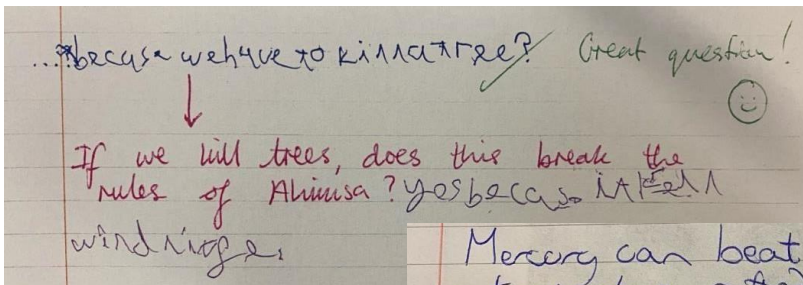 ...becase we have to kill a tree? Great question!
If we kill trees, does this break the
rules of Ahimsa? yes becas it
Mercury can beat